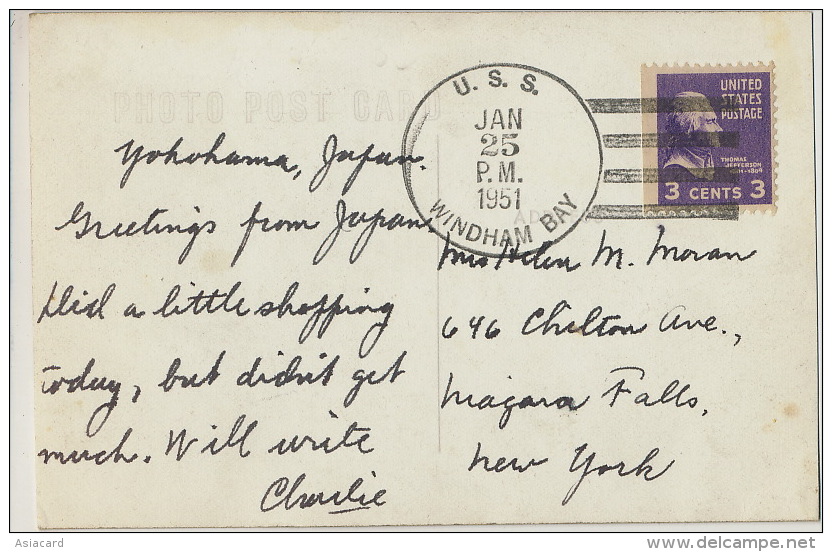 PHOTO POST CARD
U. S. S.
JAN
25
P.M.
1951
WINDHAM BAY
UNITED
STATES
POSTAGE
THOMAS
JEFFERSON
3 CENTS 3
Yokohama, Japan.
Greetings from Japan
Did a little shopping
today, but didn't get
much. Will write
Charlie
Mrs Helen M. Moran
646 Chilton Ave.,
Niagara Falls,
New York
Asiacard
www.delcampe.net